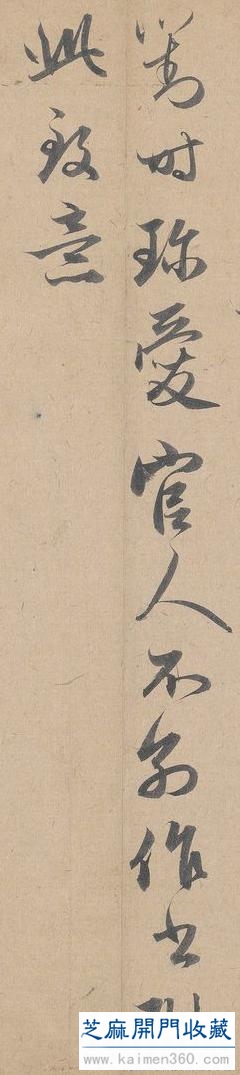 對時珍愛官人不別作書
此致意
芝麻開門收藏
www.kaimen360.com